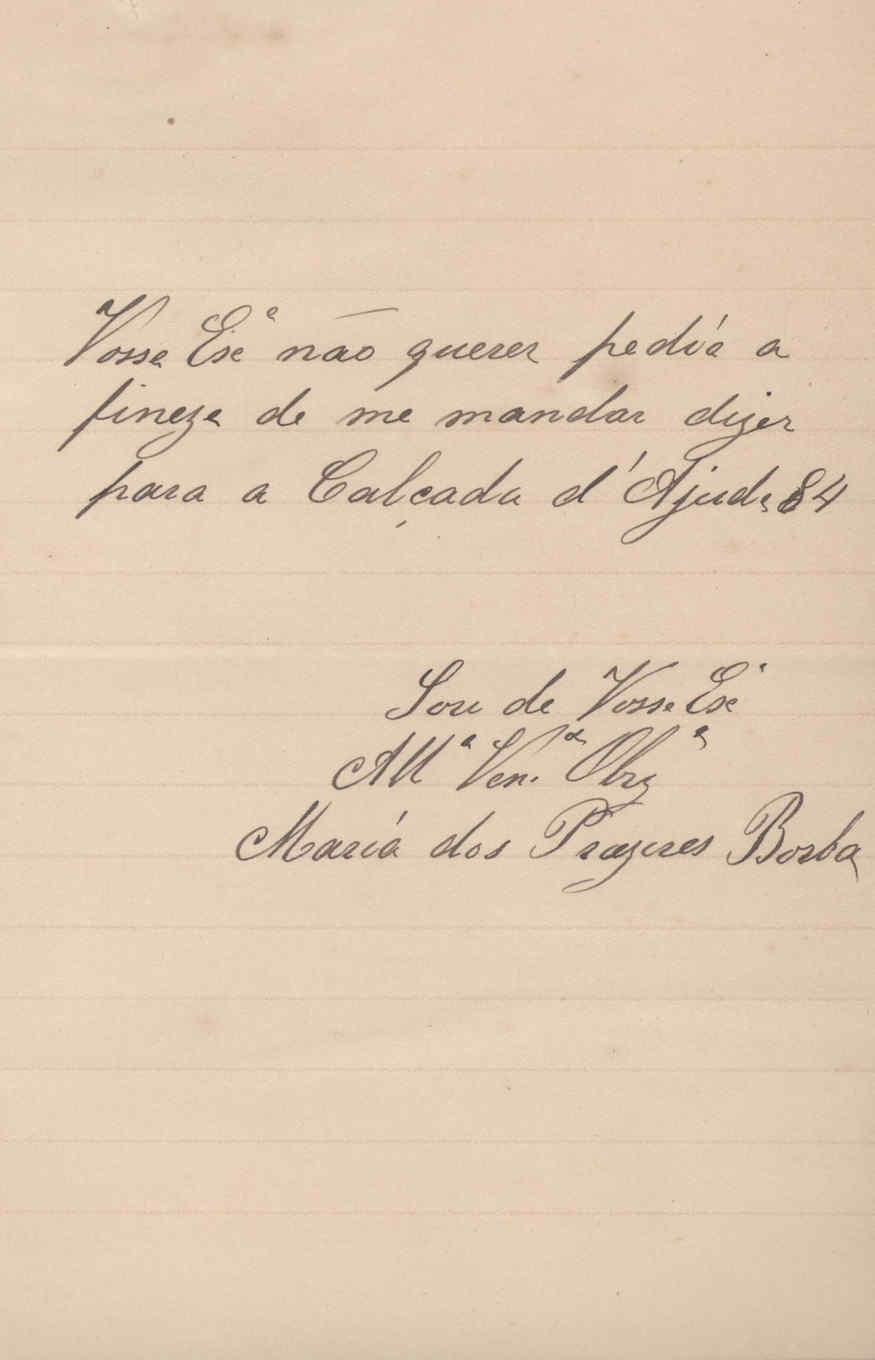 Vossa Exª não querer pedía a
fineza de me mandar dizer
para a Calçada d'Ajuda 84
Sou de Vossa Exª
Attª Ven.ª Obrgª
María dos Prazeres Borba